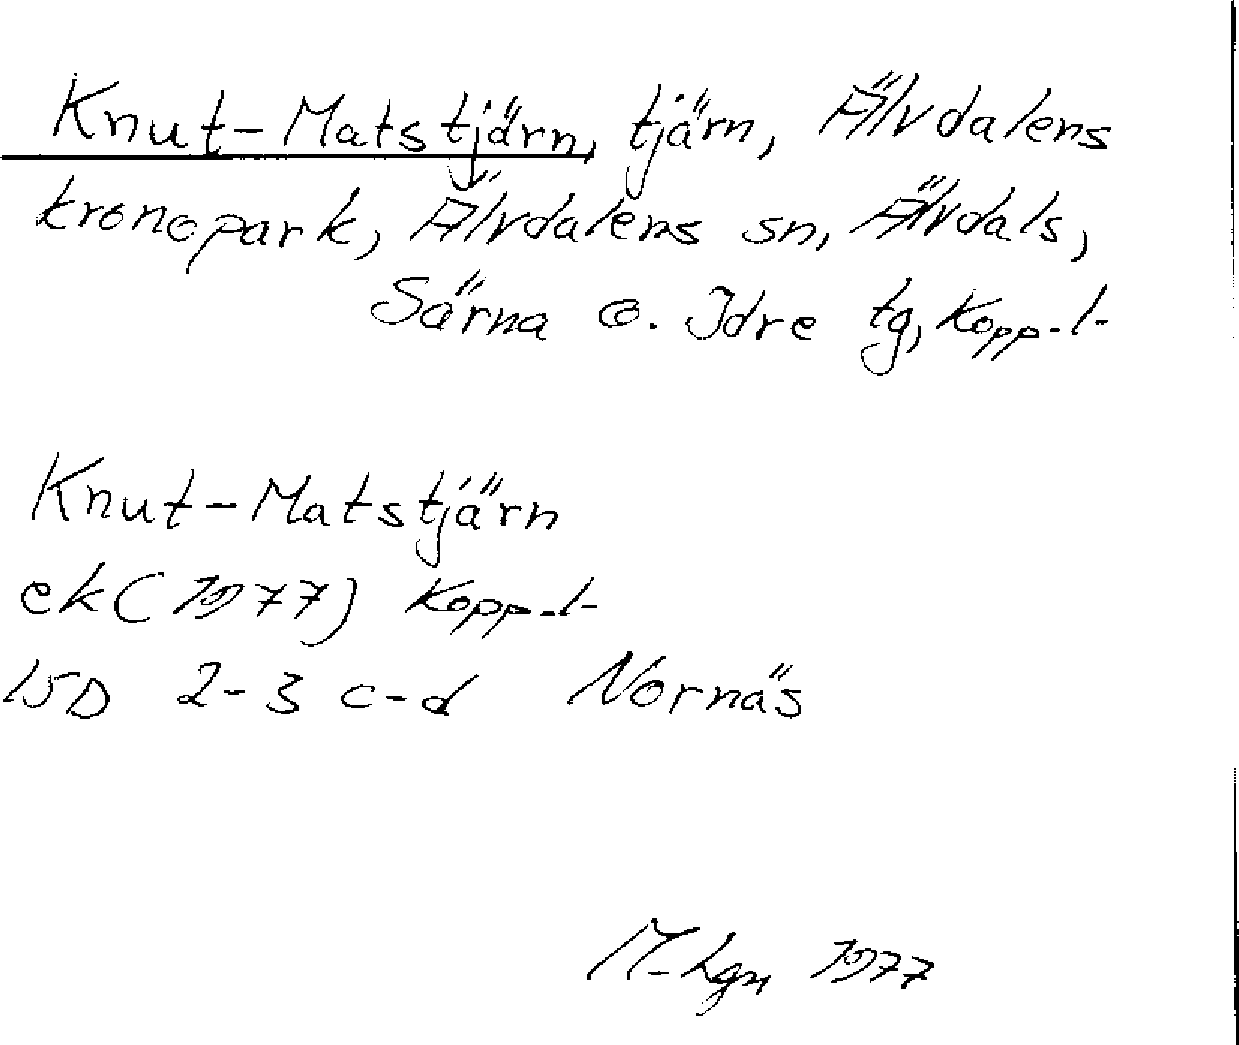 Knut-Matstjärn, tjärn, Älvdalens
kronopark, Älvdalens sn, Älvdals,
Särna o. Idre tg, Kopp.l.
Knut-Matstjärn
ek (1977) Kopp.l.
15D 2-3 c-d Nornäs
M. Lgn 1977